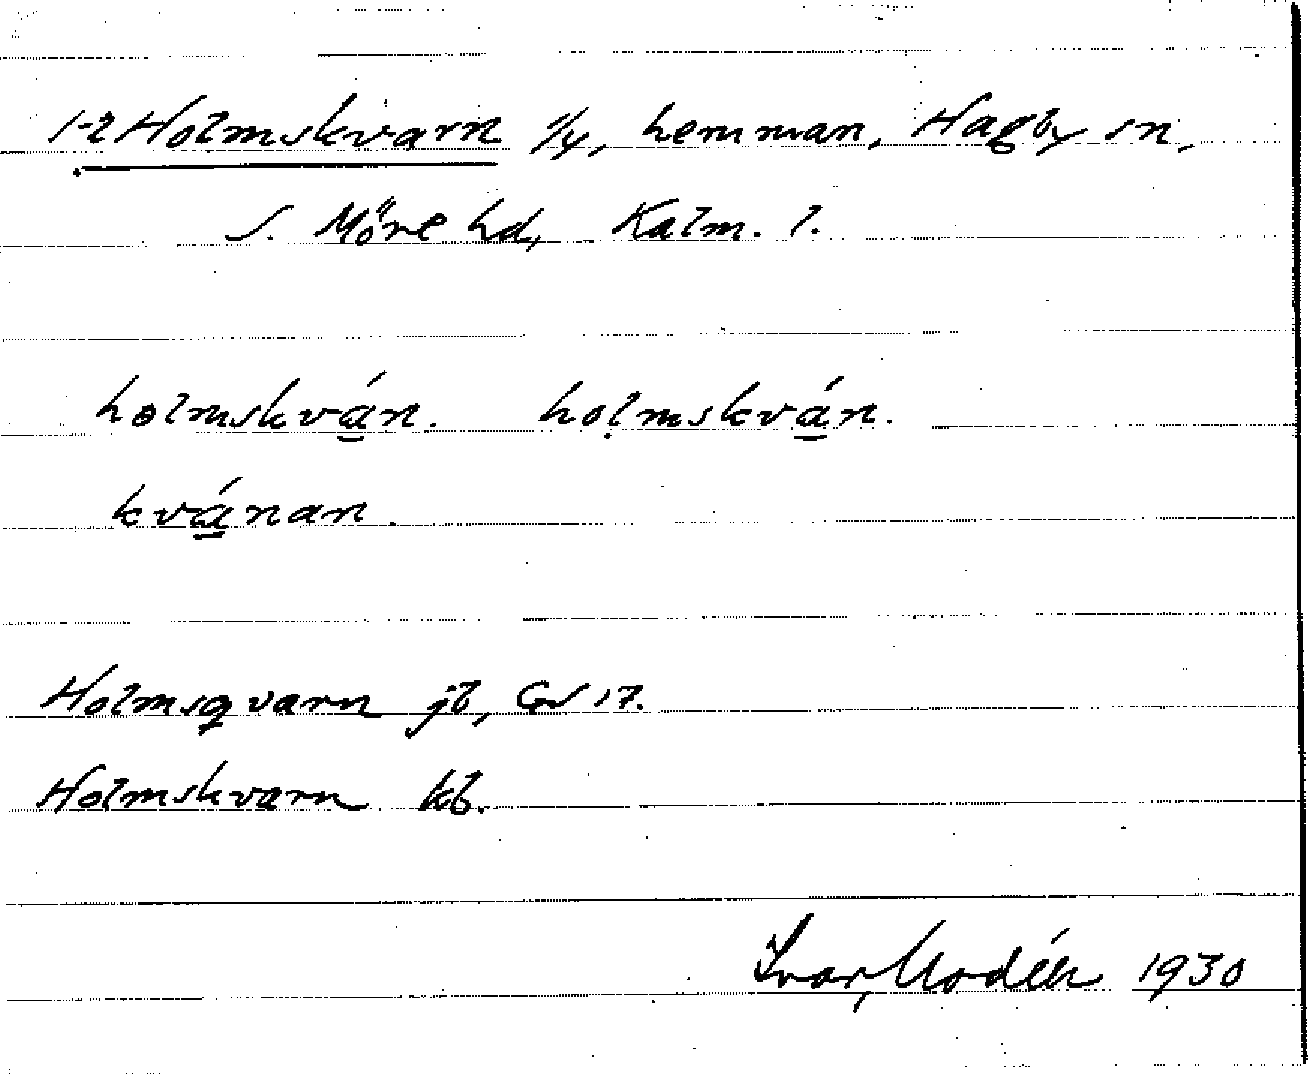 1-2 Holmskvarn 1/4, hemman, Hagby sn,
S. Möre hd, Kalm. l.
hølmskvá̲n. họlmskvá̲n.
kvá̲nan.
Holmsqvarn jb, GS 17.
Holmskvarn kb.
Ivar Modéer 1930